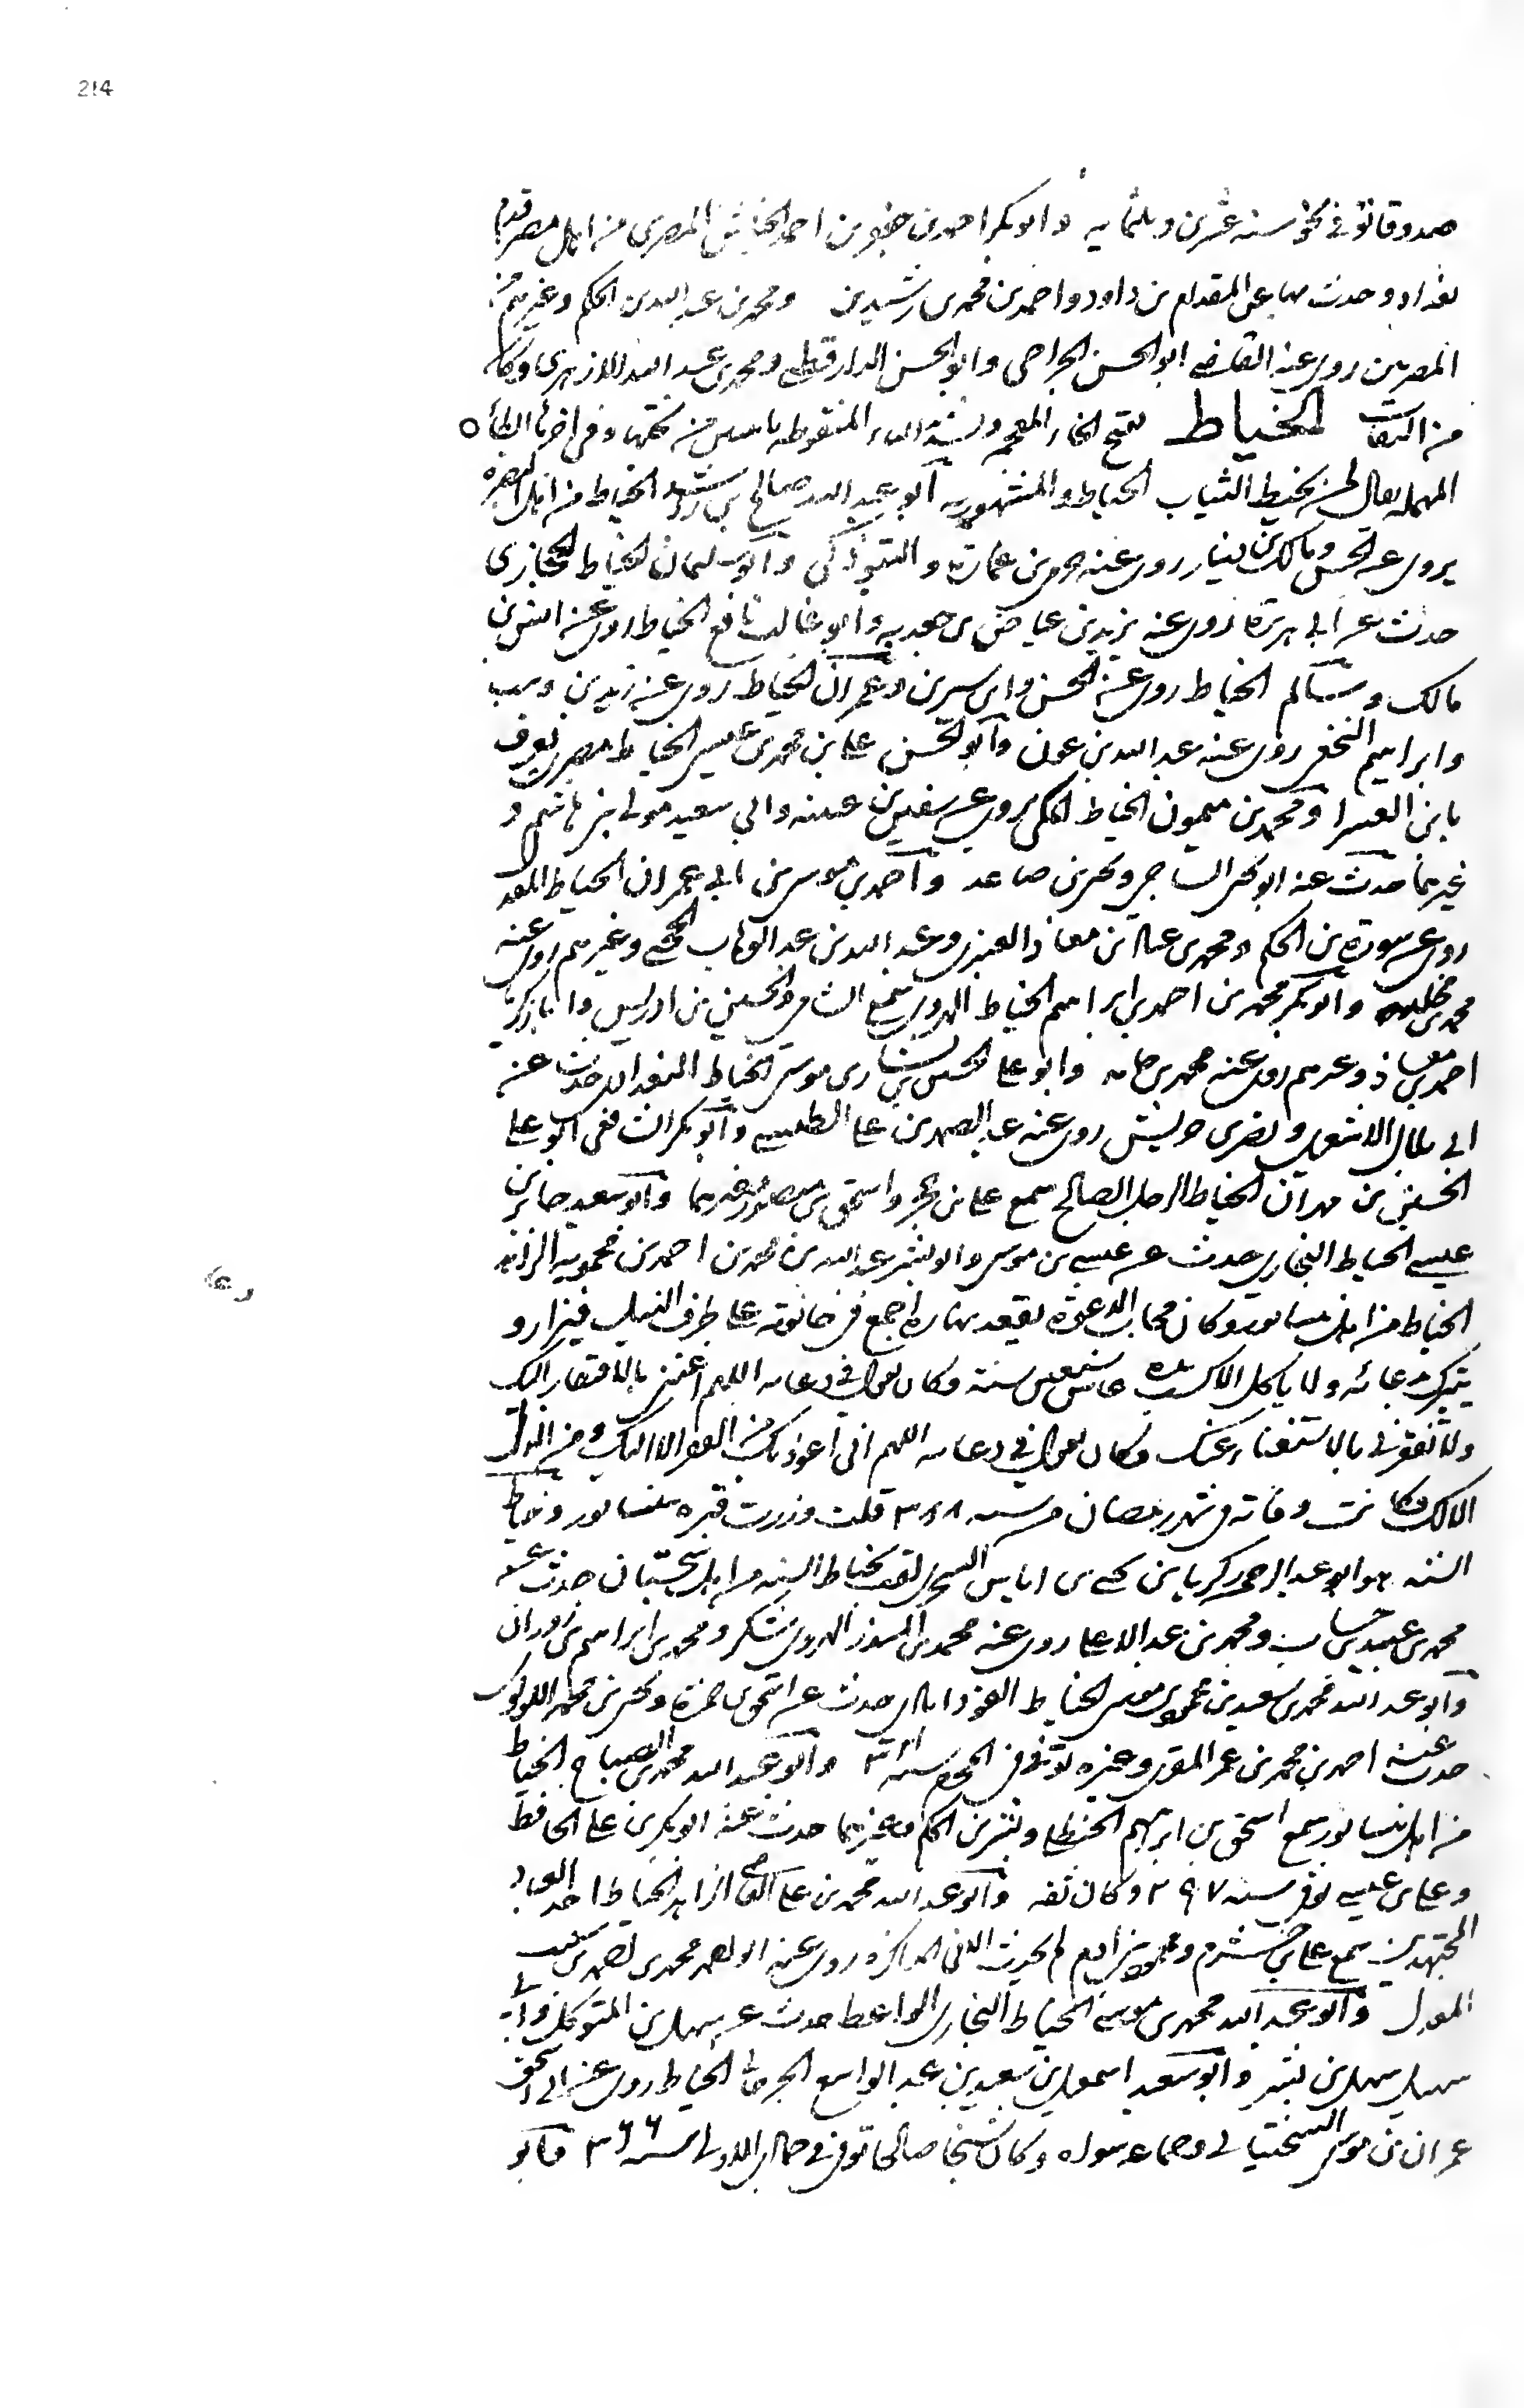 214
صدوقا توفي نحو سنة عشرين وثلثمايه وابوبكر احمد بن جعفر بن احمد الخياش المصري من اهل مصر قدم
بغداد وحدث بها عن المقدام بن داود واحمد بن محمد بن رشيدين ومحمد بن عبد الله بن الحكم وغيرهم من
المصريين روى عنه القاضي ابو الحسن الجراحي وابو الحسن الدارقطني ومحمد بن عبد الله الازهري وكان
من الثقات الخياط بفتح الخاء المعجمه وتشديد الياء المنقوطه باثنتين من تحتها وفي اخرها الطاء
المهمله يقال لمن يخيط الثياب الخياط والمشهور به ابو عبد الله صالح بن راشد الخياط من اهل البصره
يروى عن الحسن ومالك بن دينار روى عنه حرمي بن عمارة والتبوذكي وابو سليمان الخياط الحجازي
حدث عن ابي هريرة روى عنه يزيد بن عياض بن جعدبه وابو غالب نافع الخياط روى عن انس بن
مالك وسالم الخياط روى عن الحسن وابن سيرين وعمران الخياط روى عن زيد بن وهب
وابراهيم النخعي روى عنه عبد الله بن عون وابو الحسن علي بن محمد بن عيسى الخياط مصري يعرف
بابن العسرا ومحمد بن ميمون الخياط المكي يروى عن سفيان بن عيينه وابي سعيد مولى بني هاشم و
غيرهما حدث عنه ابو يحيى الساجي ويحيى بن صاعد واحمد بن موسى بن ابي عمران الخياط المعدل
روى عن سورة بن الحكم ومحمد بن عباد بن معاذ العنبري وعبد الله بن عبد الوهاب الحجبي وغيرهم روى عنه
محمد بن مخلد وابو بكر محمد بن احمد بن ابراهيم الخياط الهروي سمع الشامي والحسين بن ادريس وابا زكريا
احمد بن معاذ وغيرهم روى عنه محمد بن وابو علي الحسن بن بشار بن موسى الخياط البغدادي حدث عن
ابي بلال الاشعري ونصر بن حريش روى عنه عبد الصمد بن علي الطستي وابو بكر الشافعي وابو علي
الحسين بن مهران الخياط الرجل الصالح سمع علي بن حجر واسحق بن منصور وغيرهما وابو سعيد بن
عيسى الخياط البخاري حدث عن عيسى بن موسى وابو بشر عبد الله بن محمد بن احمد بن محمويه الزاهد
الخياط من اهل نيسابور وكان مجاب الدعوة يقعد نهاره اجمع في حانوته على طرف فيزار و
يتبرك بدعائه ولا ياكل الا كسب يده عاش تسعين سنة وكان يقول في دعائه اللهم اغنني بالافتقار اليك
ولا تفقرني بالاستغناء عنك وكان يقول في دعائه اللهم اني اعوذ بك من الفقر الا اليك ومن الذل
الا لك وكانت وفاته في شهر رمضان من سنه ٣٨٨ قلت وزرت قبره بنيسابور وخياط
السنه هو ابو عبد الرحمن زكريا بن يحيى بن اياس السجزي لقب بخياط السنه من اهل سجستان حدث عن
محمد بن عبيد بن حساب ومحمد بن عبد الاعلى روى عنه محمد بن المنذر الهروي شكر ومحمد بن ابراهيم بن
وابو عبد الله محمد بن سعيد بن محمود بن موسى الخياط حدث عن اسحق بن حمزة ويحيى بن محمد اللؤلؤي
حدث عنه احمد بن محمد بن عمر المقري وغيره توفي في المحرم سنه وابو عبد الله محمد بن الصباح الخياط
من اهل نيسابور سمع اسحق بن ابراهيم الحنظلي وبشر بن الحكم وغيرهما حدث عنه ابو بكر بن علي الحافظ
وعلي بن عيسى توفي سنه ٢٩٧ وكان ثقه وابو عبد الله محمد بن علي الزاهد الخياط احد العباد
المجتهدين سمع علي بن خشرم ومحمد بن رافع لم يحدث الا في المذاكره روى عنه ابو نصر محمد بن
المعدل وابو عبد الله محمد بن موسى الخياط البخاري الواعظ حدث عن سهل بن المتوكل وابي
سهل سهل بن بشر وابو سعيد اسمعيل بن سعيد بن عبد الواسع الجرجاني الخياط روى عن ابي اسحق
عمران بن موسى السختياني وجماعه سواه وكان شيخا صالحا توفي في جمادى الاولى سنه ٣٦٦ وابو